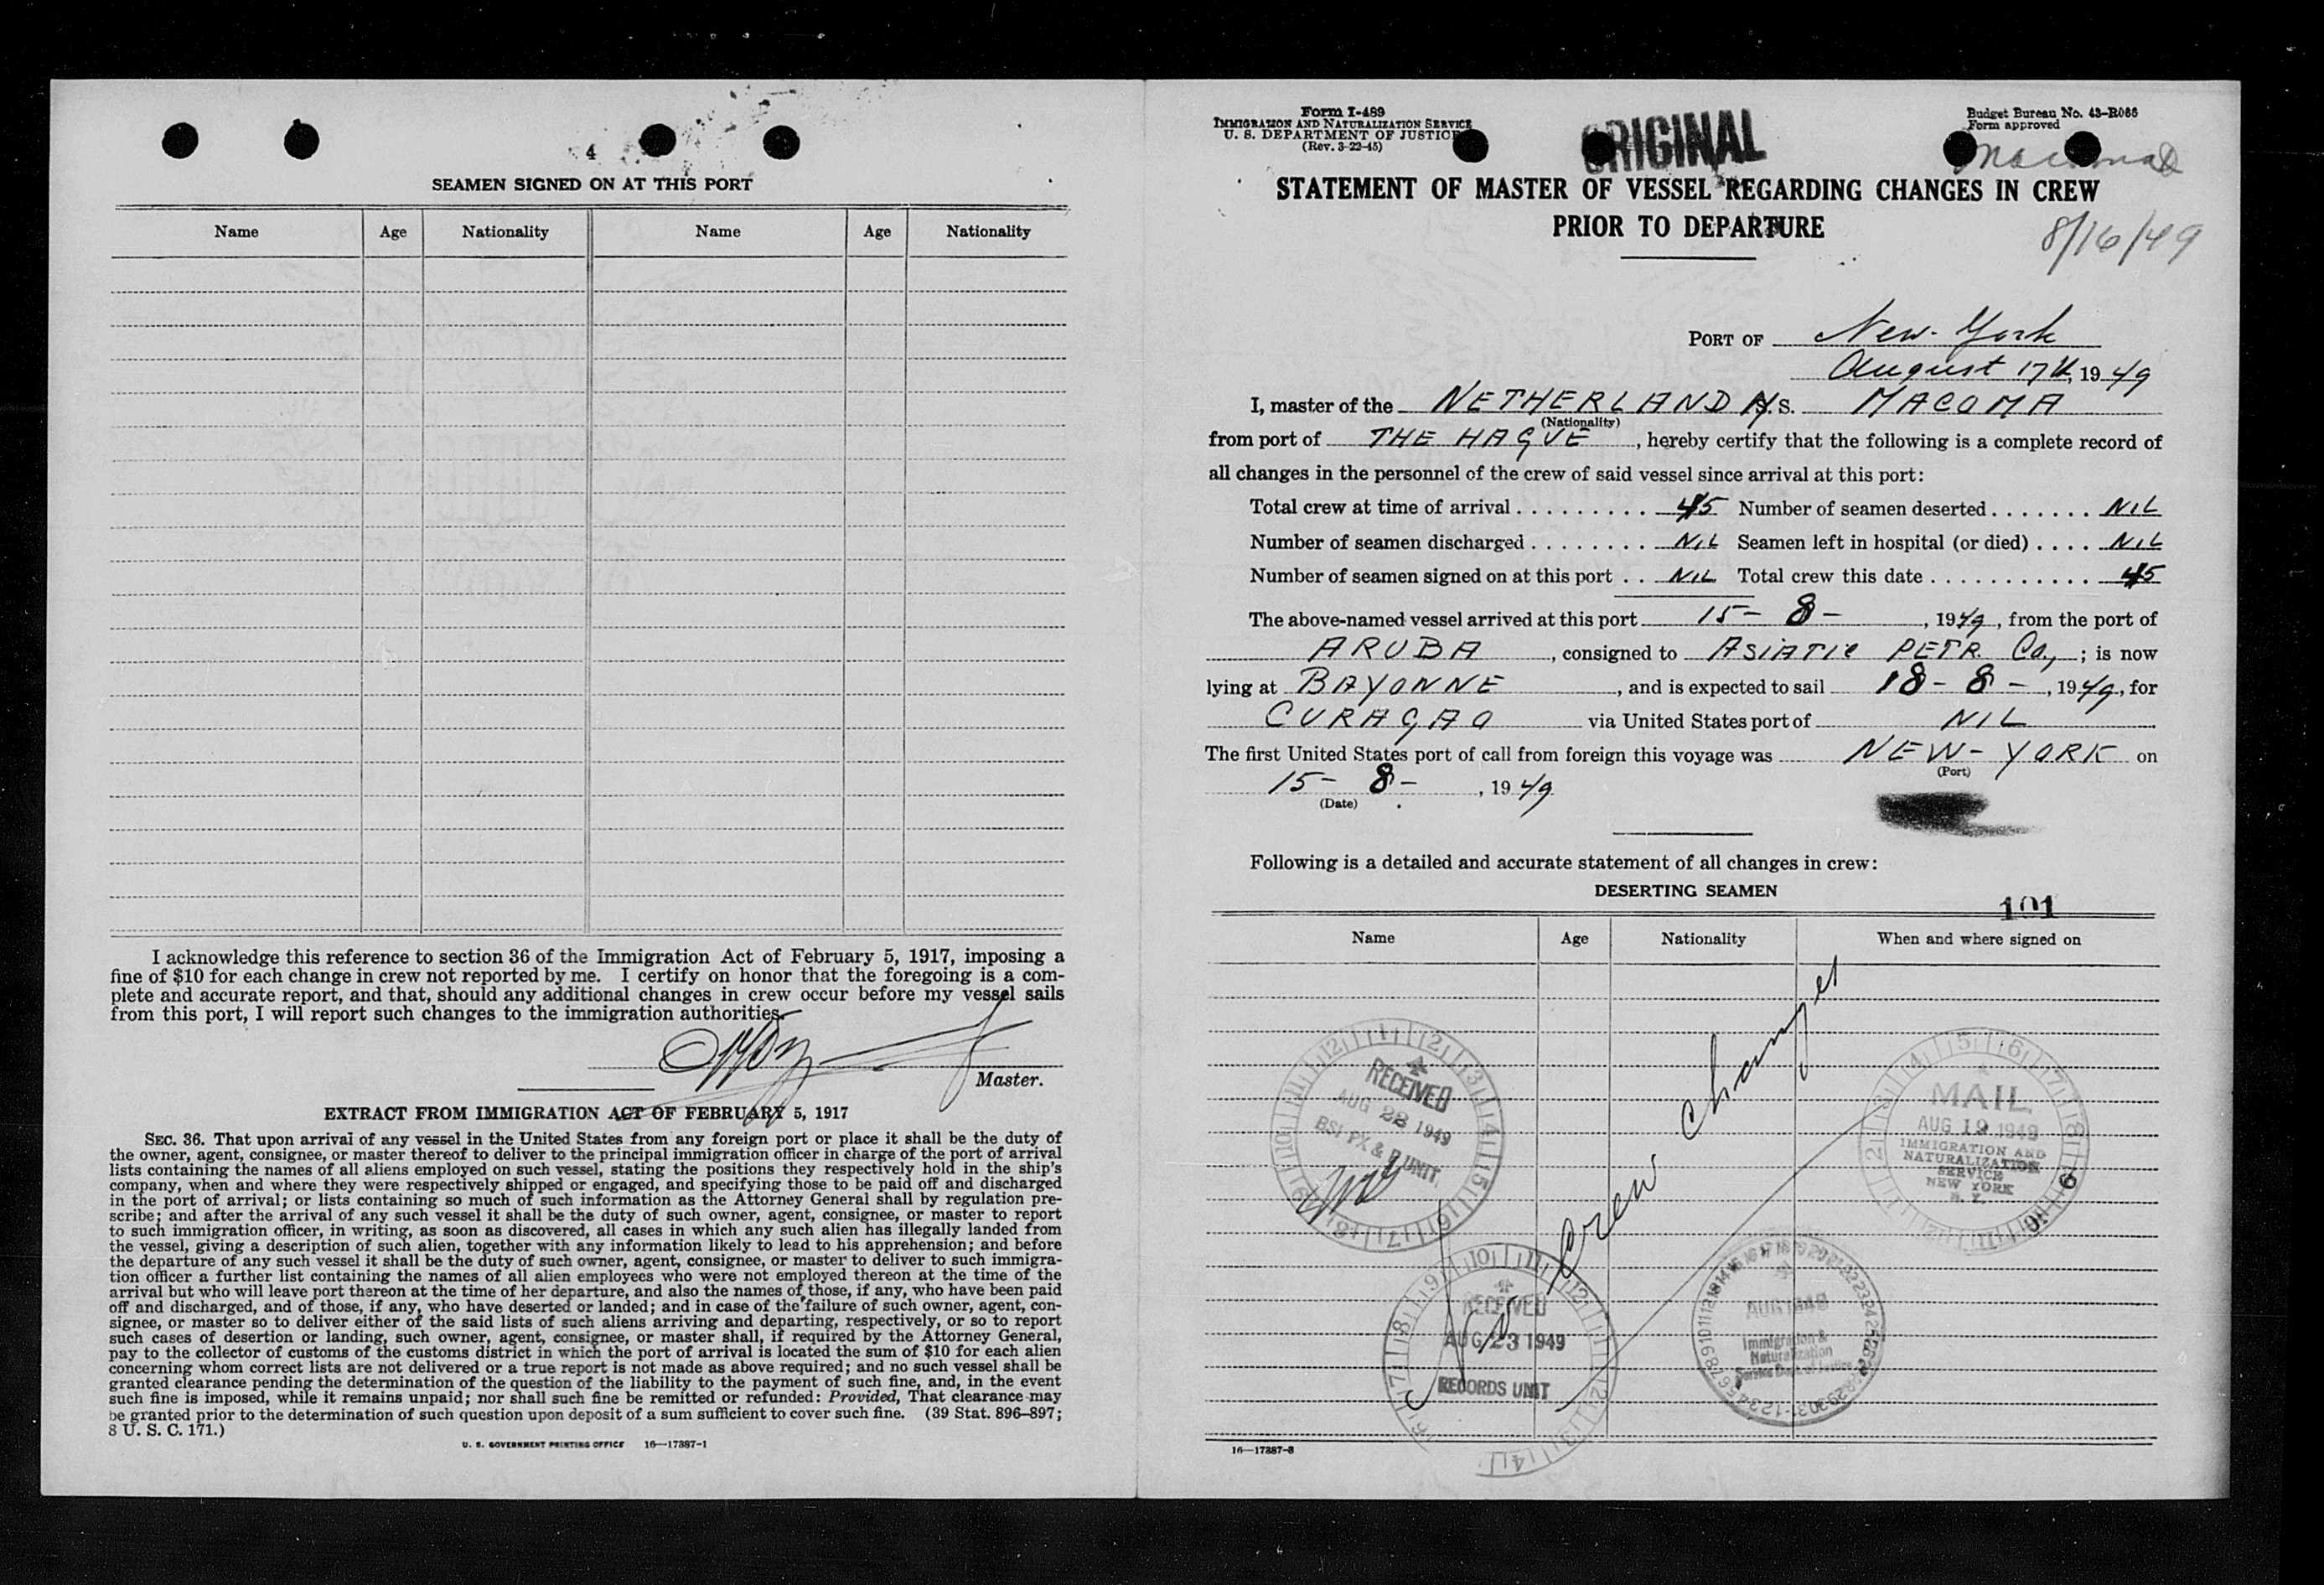 4
SEAMEN SIGNED ON AT THIS PORT
Name Age Nationality Name Age Nationality
I acknowledge this reference to section 36 of the Immigration Act of February 5, 1917, imposing a
fine of $10 for each change in crew not reported by me. I certify on honor that the foregoing is a com-
plete and accurate report, and that, should any additional changes in crew occur before my vessel sails
from this port, I will report such changes to the immigration authorities.
Master.
EXTRACT FROM IMMIGRATION ACT OF FEBRUARY 5, 1917
SEC. 36. That upon arrival of any vessel in the United States from any foreign port or place it shall be the duty of
the owner, agent, consignee, or master thereof to deliver to the principal immigration officer in charge of the port of arrival
lists containing the names of all aliens employed on such vessel, stating the positions they respectively hold in the ship's
company, when and where they were respectively shipped or engaged, and specifying those to be paid off and discharged
in the port of arrival; or lists containing so much of such information as the Attorney General shall by regulation pre-
scribe; and after the arrival of any such vessel it shall be the duty of such owner, agent, consignee, or master to report
to such immigration officer, in writing, as soon as discovered, all cases in which any such alien has illegally landed from
the vessel, giving a description of such alien, together with any information likely to lead to his apprehension; and before
the departure of any such vessel it shall be the duty of such owner, agent, consignee, or master to deliver to such immigra-
tion officer a further list containing the names of all alien employees who were not employed thereon at the time of the
arrival but who will leave port thereon at the time of her departure, and also the names of those, if any, who have been paid
off and discharged, and of those, if any, who have deserted or landed; and in case of the failure of such owner, agent, con-
signee, or master so to deliver either of the said lists of such aliens arriving and departing, respectively, or so to report
such cases of desertion or landing, such owner, agent, consignee, or master shall, if required by the Attorney General,
pay to the collector of customs of the customs district in which the port of arrival is located the sum of $10 for each alien
concerning whom correct lists are not delivered or a true report is not made as above required; and no such vessel shall be
granted clearance pending the determination of the question of the liability to the payment of such fine, and, in the event
such fine is imposed, while it remains unpaid; nor shall such fine be remitted or refunded: Provided, That clearance may
be granted prior to the determination of such question upon deposit of a sum sufficient to cover such fine. (39 Stat. 896–897;
8 U. S. C. 171.)
U. S. GOVERNMENT PRINTING OFFICE 16—17387-1
Form I-489
IMMIGRATION AND NATURALIZATION SERVICE
U. S. DEPARTMENT OF JUSTICE
(Rev. 3-22-45)
ORIGINAL
Budget Bureau No. 43-R086
Form approved
STATEMENT OF MASTER OF VESSEL REGARDING CHANGES IN CREW
PRIOR TO DEPARTURE
8/16/49
PORT OF New-York
August 17th, 1949
I, master of the NETHERLAND S. MACOMA
(Nationality)
from port of THE HAGUE, hereby certify that the following is a complete record of
all changes in the personnel of the crew of said vessel since arrival at this port:
Total crew at time of arrival . . . . . . . . . 45 Number of seamen deserted . . . . . . . NIL
Number of seamen discharged . . . . . . . . NIL Seamen left in hospital (or died) . . . . NIL
Number of seamen signed on at this port . . NIL Total crew this date . . . . . . . . . . . . 45
The above-named vessel arrived at this port 15-8-, 1949, from the port of
ARUBA, consigned to ASIATIC PETR. Co.,; is now
lying at BAYONNE, and is expected to sail 18-8-, 1949, for
CURAÇAO via United States port of NIL
The first United States port of call from foreign this voyage was NEW-YORK on
(Port)
15-8-, 1949
(Date)
Following is a detailed and accurate statement of all changes in crew:
DESERTING SEAMEN
101
Name Age Nationality When and where signed on
Crew Changes
RECEIVED
AUG 1949
BSI PX & UNIT.
MAIL
AUG 19 1949
IMMIGRATION AND
NATURALIZATION
SERVICE
NEW YORK
N. Y.
RECEIVED
AUG 23 1949
RECORDS UNIT
AUG 1949
Immigration &
Naturalization
Service Dept. of Justice
16—17387-3